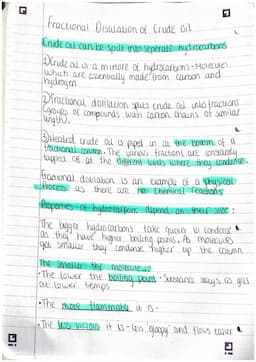 Fractional Distillation of Crude Oil
Crude oil can be split into seperate hydrocarbons
1) Crude oil is a mixture of hydrocarbons - molecules
which are essentially made from carbon and
hydrogen
2) Fractional distillation splits crude oil into fractions
(groups of compounds with carbon chains of similar
length).
3) Heated crude oil is piped in at the bottom of a
fractional column. The various fractions are constantly
tapped off at the different levels where they condense.
Fractional distillation is an example of a physical
process as there are no chemical reactions
Properties of hydrocarbons depend on their size:
The bigger hydrocarbons take quicker to condense
as they have higher boiling points. As molecules
get smaller they condense higher up the column
The smaller the molecule...
• The lower the boiling point - Substance stays as gas
at lower temps
• The more flammable it is -
• The less viscous it is - less gloopy and flows easier